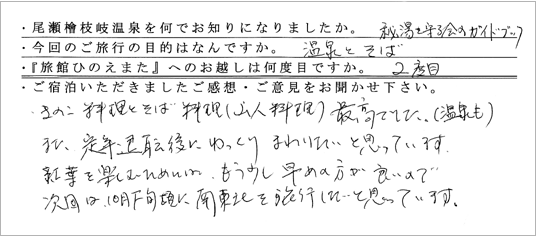 ・尾瀬檜枝岐温泉を何でお知りになりましたか。 秘湯を守る会のガイドブック
・今回のご旅行の目的はなんですか。 温泉とそば
・『旅館ひのえまた』へのお越しは何度目ですか。 2度目
・ご宿泊いただきましたご感想・ご意見をお聞かせ下さい。
・きのこ料理とそば料理(山人料理)最高でした。(温泉も)
また、定年退転後にゆっくりまわりたいと思っています。
紅葉を楽しむためには、もう少し早めの方が良いので
次回は、10月下旬頃に南東北を旅行したいと思っています。